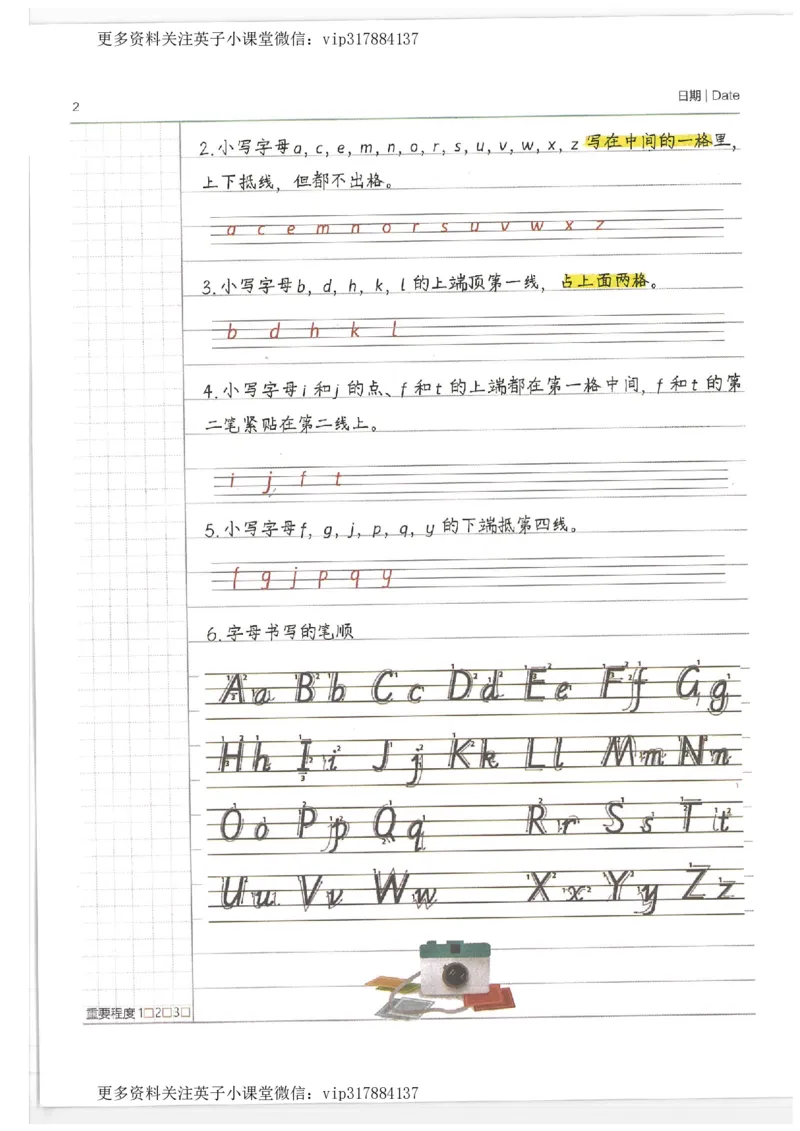 更多资料关注英子小课堂微信：vip317884137
日期 | Date
2
2.小写字母a, c, e, m, n, o, r, s, u, v, w, x, z 写在中间的一格里,
上下抵线，但都不出格。
a c e m n o r s u v w x z
3.小写字母b, d, h, k, l 的上端顶第一线，占上面两格。
b d h k l
4.小写字母i和j的点、f和t的上端都在第一格中间, f和t的第
二笔紧贴在第二线上。
i j f t
5.小写字母f, g, j, p, q, y 的下端抵第四线。
f g j p q y
6.字母书写的笔顺
Aa Bb Cc Dd Ee Ff Gg
Hh Ii Jj Kk Ll Mm Nn
Oo Pp Qq Rr Ss Tt
Uu Vv Ww Xx Yy Zz
重要程度 1□2□3□
更多资料关注英子小课堂微信：vip317884137